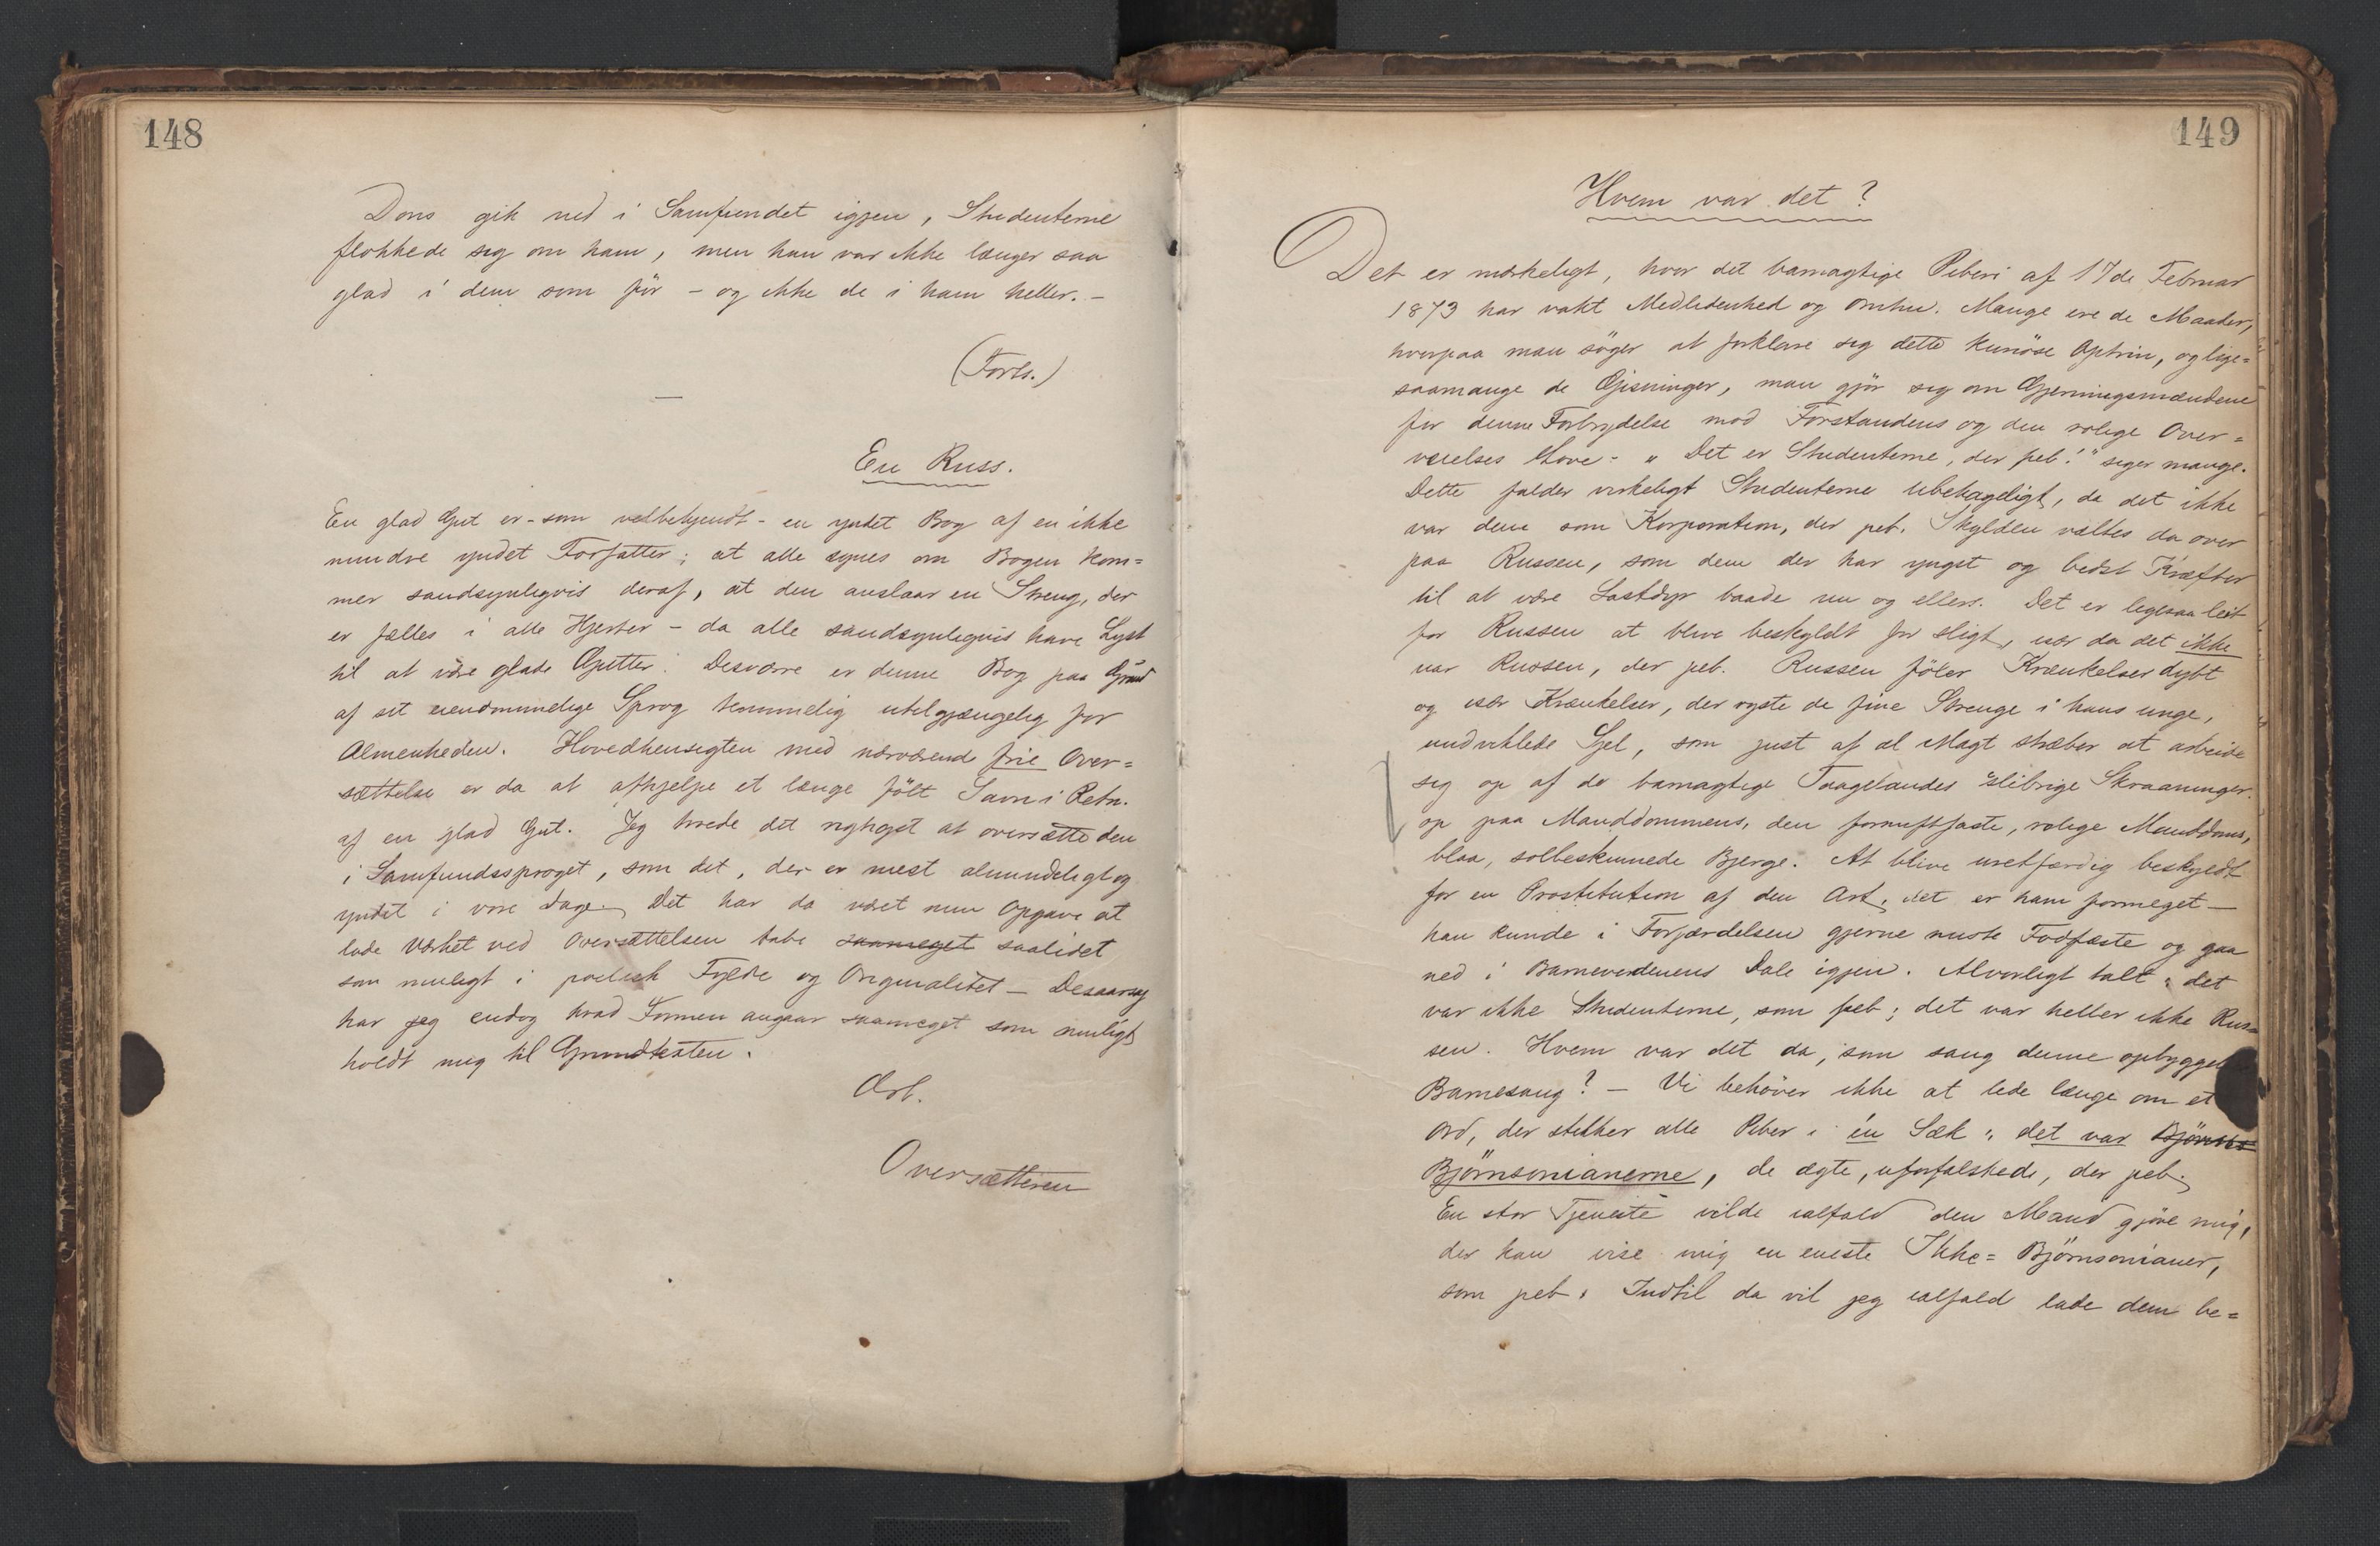 148
Dons gik ned i Samfundet igjen, Studenterne
flokkede sig om ham, men han var ikke længer saa
glad i dem som før – og ikke de i ham heller. –
(Forts.)
En Russ.
En glad Gut er – som velbekjendt – en yndet Bog af en ikke
mindre yndet Forfatter; at alle synes om Bogen kom=
mer sandsynligvis deraf, at den anslaar en Streng, der
er fælles i alle Hjerter – da alle sandsynligvis have Lyst
til at være glade Gutter. Desværre er denne Bog paa Grund
af sit eiendommelige Sprog temmelig utilgjængelig for
Almenheden. Hovedhensigten med nærværende frie Over=
sættelse er da at afhjelpe et længe følt Savn i Retn.
af en glad Gut. Jeg troede det rigtigst at oversætte den
i Samfundssproget, som det, der er mest almindeligt og
yndet i vore Dage. Det har da været min Opgave at
lade Værket ved Oversættelsen tabe saameget saalidet
som muligt i poetisk Fylde og Originalitet – Desaarsag
har jeg endog hvad Formen angaar saameget som muligt
holdt mig til Grundtexten.
Ærb.
Oversætteren
149
Hvem var det?
Det er mærkeligt, hvor det barnagtige Piberi af 17de Februar
1873 har vakt Medlidenhed og Omhu. Mange ere de Maader,
hvorpaa man søger at forklare sig dette kuriøse Optrin, og lige=
saamange de Gisninger, man gjør sig om Gjerningsmændene
for denne Forbrydelse mod Forstandens og den rolige Over=
veielses Love – "Det er Studenterne, der peb!" siger mange.
Dette falder virkeligt Studenterne ubehageligt, da det ikke
var dem som Korporation, der peb. Skylden væltes da over
paa Russen, som dem der har yngst og bedst Kræfter
til at være Lastdyr baade nu og ellers. Det er ligesaa leit
for Russen at blive beskyldt for sligt, især da det ikke
var Russen, der peb. Russen føler Krænkelser dybt
og især Krænkelser, der ryste de fine Strenge i hans unge,
uudviklede Sjel, som just af al Magt stræber at arbeide
sig op af de barnagtige Taagelandes slibrige Skraaninger
op paa Manddommens, den fornuftfaste, rolige Manddoms,
blaa, solbeskinnede Bjerge. At blive uretfærdig beskyldt
for en Prostitution af den Art, det er ham formeget –
han kunde i Forfærdelsen gjerne miste Fodfæste og gaa
ned i Barneverdenens Dale igjen. Alvorligt talt: det
var ikke Studenterne, som peb; det var heller ikke Rus=
sen. Hvem var det da, som sang denne opbyggel
Barnesang? – Vi behøver ikke at lede længe om et
Ord, der stikker alle Piber i én Sæk: det var Bjørnso
Bjørnsonianerne, de ægte, uforfalskede, der peb.
En stor Tjeneste vilde ialfald den Mand gjøre mig,
der kan vise mig en eneste Ikke=Bjørnsonianer,
som peb. Indtil da vil jeg ialfald lade dem be=